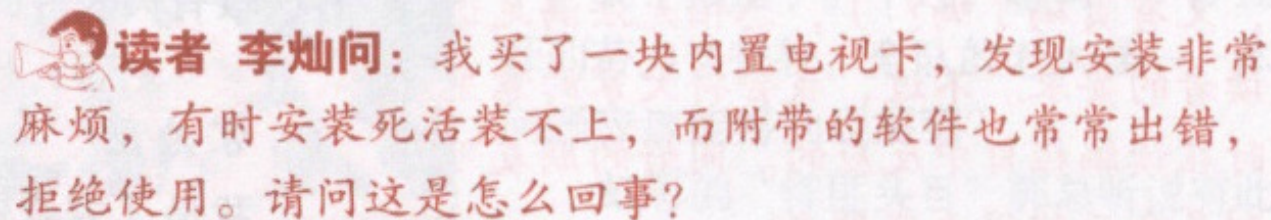 读者 李灿问：我买了一块内置电视卡，发现安装非常
麻烦，有时安装死活装不上，而附带的软件也常常出错，
拒绝使用。请问这是怎么回事？